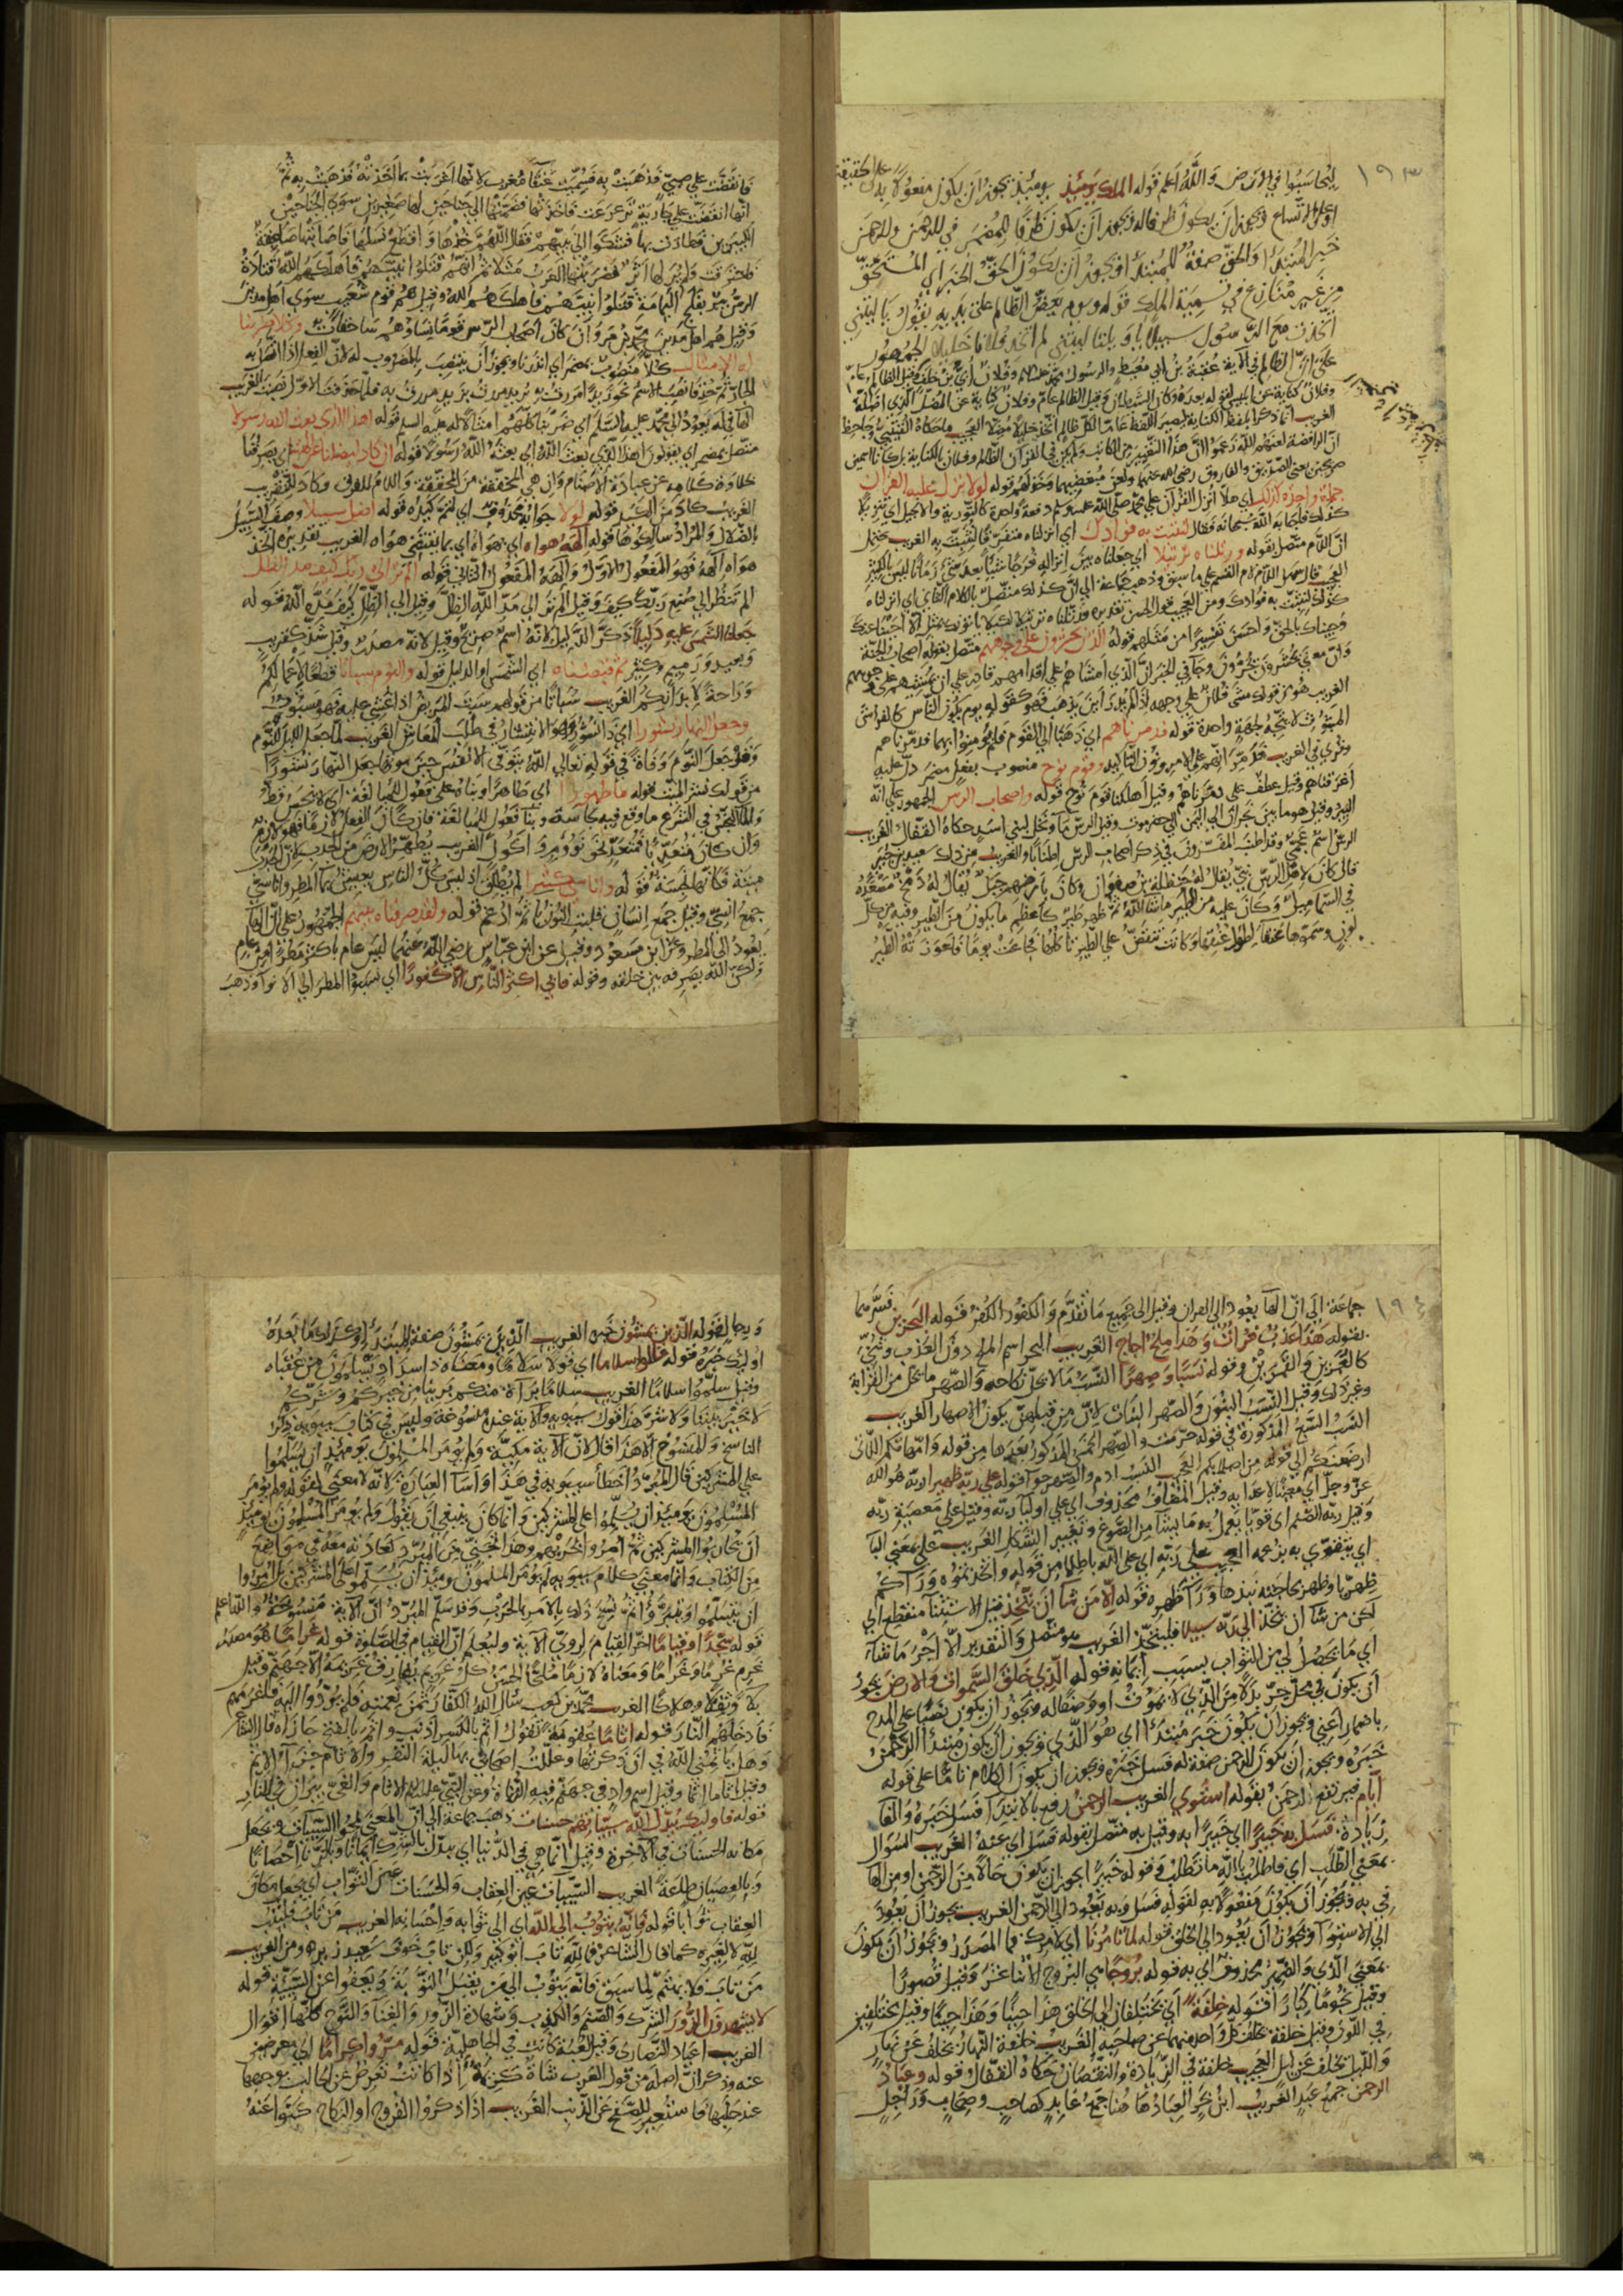 ١٩٣
ليحاسبوا في الارض والله اعلم قوله الملك يومئذ يومئذ يجوز ان يكون مفعولا به على الحقيقة
او على الاتساع ويجوز ان يكون ظرفا له ويجوز ان يكون ظرفا للمضمر في للرحمن وللرحمن
خبر المبتدأ والحق صفة للمبتدأ ويجوز ان يكون الحق الخبر اي المستحق
من غير منازع في تسمية الملك قوله ويوم يعض الظالم على يديه يقول يا ليتني
اتخذت مع الرسول سبيلا يا ويلتا ليتني لم اتخذ فلانا خليلا الجمهور
على ان الظالم في الآية عقبة بن ابي معيط والرسول محمد عليه السلام وفلان ابي بن خلف وقيل الظالم عام
وفلان كناية عن ابليس لقوله بعده وكان الشيطان وقيل الظالم عام وفلان كناية عن المضل الذي اضله
الغريب انما ذكر بلفظ الكناية ليصير اللفظ عاما لكل ظالم اتخذ خليلا مضلا العجيب ما حكاه القتيبي والجاحظ
ان الرافضة لعنهم الله زعموا ان هذا التغيير من الكاتب ولم يكن في القرآن الظالم وفلان بالكناية بل كانا اسمين
صريحين يعني الصديق والفاروق رضي الله عنهما ولعن مبغضيهما قوله لولا نزل عليه القران
جملة واحدة كذلك اي هلا انزل القرآن على محمد صلى الله عليه وسلم دفعة واحدة كالتورية والانجيل
كذلك فاجابه الله سبحانه فقال لنثبت به فؤادك اي انزلناه متفرقا لنثبت به الغريب يحتمل
ان اللام متصل بقوله ورتلناه ترتيلا اي جعلناه بين انزاله فرجا شيئا بعد شيء زمانا ليس بالكثير
العجيب قال سهل اللام لام القسم على ما سبق وذهب جماعة الى ان كذلك متصل بالكلام الثاني اي انزلناه
كذلك لنثبت به فؤادك
وجيناك بالحق واحسن تفسيرا من مثلهم قوله الذين يحشرون على وجوههم متصل بقوله اصحاب الجنة
وان معنى يحشرون يجرون وجاء في الخبر ان الذي امشاهم على اقدامهم قادر على ان يمشيهم على وجوههم
الغريب هو من قولك مشى فلان على وجهه اذا لم يدر اين يذهب فهو كقوله يوم يكون الناس كالفراش
المبثوث لا يتجه لجهة واحدة قوله فدمرناهم اي ذهبا الى القوم فلم يؤمنوا بهما فدمرناهم
وقرئ في الغريب فدمرانهم على الامر ونون التاكيد وقوم نوح منصوب بفعل مضمر دل عليه
اغرقناهم وقيل عطف على دمرناهم وقيل اهلكنا قوم نوح قوله واصحاب الرس الجمهور على انه
البئر وقيل هو ما بين نجران الى اليمن الى حضرموت وقيل الرس ماء ونخل لبني اسد حكاه القفال الغريب
الرس اسم عجمي وقد اطنب المفسرون في ذكر اصحاب الرس اطنابا والغريب من ذلك سعيد بن جبير
قال كان لاهل الرس نبي يقال له حنظلة بن صفوان وكان بارضهم جبل يقال له دمخ مصعده
في السماء ميل وكان عليه من الطير ما شاء الله ثم ظهر طير كاعظم ما يكون من الطير وفيه من كل
لون وسموها عنقاء لطول عنقها وكانت تنقض على الطير تأكلها فجاعت يوما فاعوزته الطير
فانقضت على صبي فذهبت به فسميت عنقاء مغرب لانها اغربت بما اخذته فذهبت به ثم
انها انقضت على جارية ترعرعت فاخذتها فضمتها الى جناحين لها صغيرين سوى الجناحين
الكبيرين فطارت بها فشكوا الى نبيهم فقال اللهم خذها واقطع نسلها فاصابتها صاعقة
فاحترقت ولم ير لها اثر فضربتها العرب مثلا ثم انهم قتلوا نبيهم فاهلكهم الله قتادة
الرس بئر بفلج اليمامة قتلوا نبيهم فاهلكهم الله وقيل هم قوم شعيب سوى اهل مدين
وقيل هم اهل مدين محمد بن مروان كان اصحاب الرس قوما نساؤهم ساحقات وكلا ضربنا
له الامثال كلا منصوب بمضمر اي انذرنا ويجوز ان ينتصب بالمضروب له لان الفعل اذا اتصل به
الجار ثم حذف نصب الاسم نحو زيدا مررت به
الهاء في له يعود الى محمد عليه السلام اي ضربنا كلهم امثالا له عليه السلم قوله اهذا الذي بعث الله رسولا
متصل بمضمر اي يقولون اهذا الذي بعث الله اي بعثه الله رسولا قوله ان كاد ليضلنا عن الهتنا اي يصرفنا
حلاوة كلامه عن عبادة الاصنام وان هي المخففة من المحققة واللام للفرق وكاد للتقريب
الغريب كاد من الكيد قوله لولا جوابه محذوف اي لتم كيده قوله اضل سبيلا وصف السبيل
بالضلال والمراد سالكوها قوله الهه هواه اي يهواه اي بما يقتضي هواه الغريب تقديره اتخذ
هواه الهه فهو المفعول الاول والهه المفعول الثاني قوله الم تر الى ربك كيف مد الظل
الم تنظر الى صنع ربك كيف وقيل الم تر الى مد الله الظل وقيل الى الظل كيف مده الله قوله
جعلنا الشمس عليه دليلا ذكر الدليل لانه اسم صريح وقيل لانه مصدر وقيل شد كقريب
وبعيد ورميم وكثير ثم قبضناه اي الشمس او الدليل قوله والنوم سباتا قطعا لاعمالكم
وراحة لابدانكم الغريب سباتا من قولهم سبت المريض اذا غشي عليه فهو مسبوت
وجعل النهار نشورا اي ذا نشور وهو الانتشار في طلب المعاش الغريب لما جعل الليل للنوم
وقد جعل النوم وفاة في قوله تعالى الله يتوفى الانفس حين موتها جعل النهار نشورا
من قولك نشر الميت قوله ماء طهورا اي طاهرا وبناه على فعول للمبالغة اي لا نجس قط
والماء النجس في الشرع ما وقع فيه نجاسة وبناء فعول للمبالغة فان كان الفعل لازما فهو لازم
وان كان متعديا فمتعد نحو نؤوم واكول الغريب يطهر الارض من الجدب لان الجدب
ميتة فكانها نجسة قوله واناسي كثيرا لم يطلق اذ ليس كل الناس يعيش بماء المطر واناسي
جمع انسي وقيل جمع انسان فقلبت النون ياء ثم ادغم قوله ولقد صرفناه بينهم الجمهور على ان الهاء
يعود الى المطر وعن ابن مسعود وقيل عن ابن عباس رضي الله عنهما ليس عام باكثر مطرا من عام
ولكن الله يصرفه بين خلقه وقوله فابى اكثر الناس الا كفورا اي نسبوا المطر الى الانواء وذهب
١٩٤
جماعة الى ان الهاء يعود الى القران وقيل الى جميع ما تقدم والكفور الكفر قوله البحرين فسرهما
بقوله هذا عذب فرات وهذا ملح اجاج الغريب البحر اسم الملح دون العذب وثني
كالعمرين والقمرين وقوله نسبا وصهرا النسب ما لا يحل نكاحه والصهر ما يحل من القرابة
وغير ذلك وقيل النسب البنون والصهر البنات لان من قبلهن يكون الاصهار الغريب
النسب السبع المذكورة في قوله حرمت والصهر الخمس المذكور بعدها من قوله وامهاتكم اللاتي
ارضعنكم الى قوله من اصلابكم العجيب النسب ادم والصهر حوا قوله على ربه ظهيرا ربه هو الله
عز وجل اي معينا لاعدائه وقيل المضاف محذوف اي على اولياء ربه وقيل على معصية ربه
وقيل ربه الصنم اي قويا يعمل به ما يشاء من الصوغ وتغيير الشكل الغريب على بمعنى الباء
اي يتقوى به بزعمه العجيب على ربه اي على الله باطلا من قوله واتخذتموه وراءكم
ظهريا وظهر بحاجته نبذها وراء ظهره قوله الا من شاء ان يتخذ قيل الاستثناء منقطع اي
لكن من شاء ان يتخذ الى ربه سبيلا فليتخذ الغريب هو متصل والتقدير الا اجر من شاء
اي ما يحصل لي من الثواب بسبب ايمانه قوله الذي خلق السموات والارض يجوز
ان يكون في محل جر بدلا من الذي لا يموت او وصفا له ويجوز ان يكون نصبا على المدح
باضمار اعني ويجوز ان يكون خبر مبتدأ اي هو الذي ويجوز ان يكون مبتدأ الرحمن
خبره ويجوز ان يكون الرحمن صفة له فسل خبره ويجوز ان يكون الكلام تاما على قوله
ايام فيرتفع الرحمن بقوله استوى الغريب الرحمن رفع بالابتداء فسل خبره والفاء
زيادة فسل به خبيرا اي خبيرا به وقيل به متصل بقوله فسل اي عنه الغريب السؤال
بمعنى الطلب اي فاطلب بالله ما تطلب وقوله خبيرا يجوز ان يكون حالا من الرحمن او من الهاء
في به ويجوز ان يكون مفعولا به لقوله فسل وبه يعود الى الرحمن الغريب يجوز ان يعود
الى الاستواء ويجوز ان يعود الى الخلق قوله لما تامرنا اي لامرك فما المصدر ويجوز ان يكون
بمعنى الذي والضمير محذوف اي به قوله بروجا هي البروج الاثنا عشر وقيل قصورا
وقيل نجوما كبارا قوله خلفة اي يختلفان اي يخلق هذا حينا وهذا حينا وقيل مختلفين
في اللون وقيل خلفة يخلف كل واحد منهما عن صاحبه الغريب خلفة النهار يخلف عن نهار
والليل يخلف عن ليل العجيب خلفة في الزيادة والنقصان حكاه القفال قوله وعباد
الرحمن جمع عبد الغريب ابن بحر العباد ها هنا جمع عابد كصاحب وصحاب وراجل
ورجال قوله الذين يمشون خبره الغريب الذين يمشون صفة للمبتدأ وكذلك ما بعده
اولئك خبره قوله قالوا سلاما اي قولا سلاما ومعناه سدادا يسلمون من عقباه
وقيل سلموا سلاما الغريب سلاما براءة منكم بريئا من خيركم وشركم
لا خير بيننا ولا شر هذا قول سيبويه والآية عنده منسوخة وليس في كتاب سيبويه ذكر
الناسخ والمنسوخ الا هذا قال لان الآية مكية ولم يؤمر المسلمون يومئذ ان يسلموا
على المشركين قال المبرد اخطأ سيبويه في هذا واساء العبارة لانه لا معنى لقوله ولم يؤمر
المسلمون يومئذ ان يسلموا على المشركين وانما كان ينبغي ان يقول ولم يؤمر المسلمون يومئذ
ان يحاربوا المشركين ثم امروا بحربهم وهذا تجني من المبرد كعادته معه في مواضع
من الكتاب وانما معنى كلام سيبويه لم يؤمر المسلمون يومئذ ان يسلموا على المشركين بل امروا
ان يتسلموا ويتبرؤا ثم نسخ ذلك بالامر بالحرب وقد سلم المبرد ان الآية منسوخة والله اعلم
قوله سجدا وقياما اخر القيام لروي الآية وليعلم ان القيام في الصلوة قوله غراما هو مصدر
غرم غرما وغراما ومعناه لازما ملحا الحسن كل غريم يفارق غريمه الا جهنم وقيل
بلاء وثقلا وهلاكا الغريب محمد بن كعب سأل الله الكفار ثمن نعمته فلم يؤدوا اليه فاغرمهم
فادخلهم النار قوله اثاما عقوبة تقول اثم بالكسر اذنب واثم بالفتح جازاه قال الشاعر
وهل يأثمني الله في ان ذكرتها وعللت اصحابي بها ليلة النفر والاثام جزاء الاثم
وقيل اثاما اثما وقيل اسم واد في جهنم فيه القتلة وعن النبي عليه السلام الاثام والغي بيران في النار
قوله فاوليك يبدل الله سيئاتهم حسنات ذهب جماعة الى ان المعنى يمحو السيئات ويجعل
مكانه الحسنات في الآخرة وقيل انما هي في الدنيا اي يبدل بالشرك ايمانا وبالزنا احصانا
وبالعصيان طاعة الغريب السيئات عين العقاب والحسنات عين الثواب اي يجعل مكان
العقاب ثوابا قوله فانه يتوب الى الله اي الى ثوابه واحسانه الغريب من تاب فليتب
لله لا لغيره كما قال الشاعر
من تاب فلا يهتم لما سبق فانه يتوب الى من يقبل التوبة ويعفوا عن السيئة قوله
لا يشهدون الزور الشرك والصنم والكذب وشهادة الزور والغناء والنوح كلها اقوال
الغريب اعياد النصارى وقيل لعبة كانت في الجاهلية قوله مروا كراما اي معرضين
عنه وذكر ان اصله من قول العرب شاة كريمة اذا كانت تعرض عن الحالب بوجهها
عند حلبها فاستعير للصفح عن الذنب الغريب اذا ذكروا الفروج او النكاح كنوا عنه